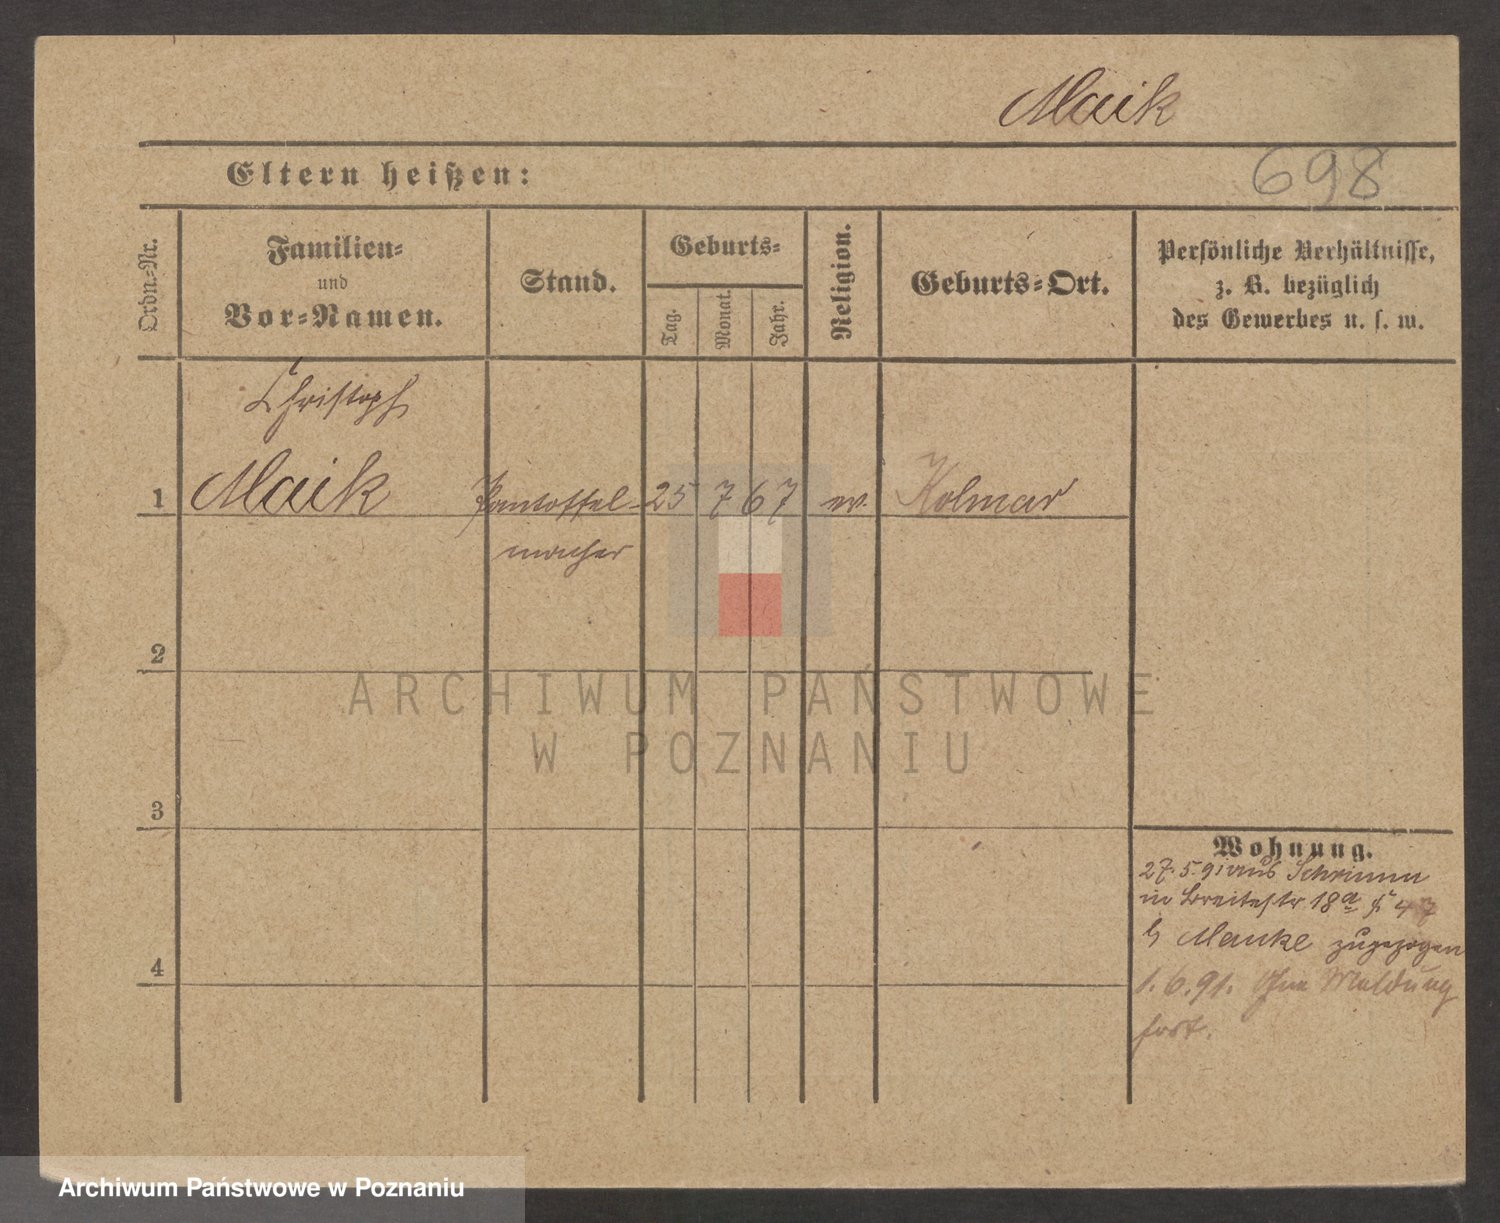 Maik
Eltern heißen:
698
Ordn.-Nr.
Familien-
und
Vor-Namen.
Stand.
Geburts-
Tag.
Monat.
Jahr.
Religion.
Geburts-Ort.
Persönliche Verhältnisse,
z. B. bezüglich
des Gewerbes u. s. w.
Christoph
1 Maik Pantoffel- 25 7 67 ev. Kolmar
macher
2
3
4
Wohnung.
27. 5. 91 aus Schrimm
in Breitestr 18a
b/ Manke zugezogen
1. 6. 91. Ohne Meldung
fort.
ARCHIWUM PAŃSTWOWE
W POZNANIU
Archiwum Państwowe w Poznaniu